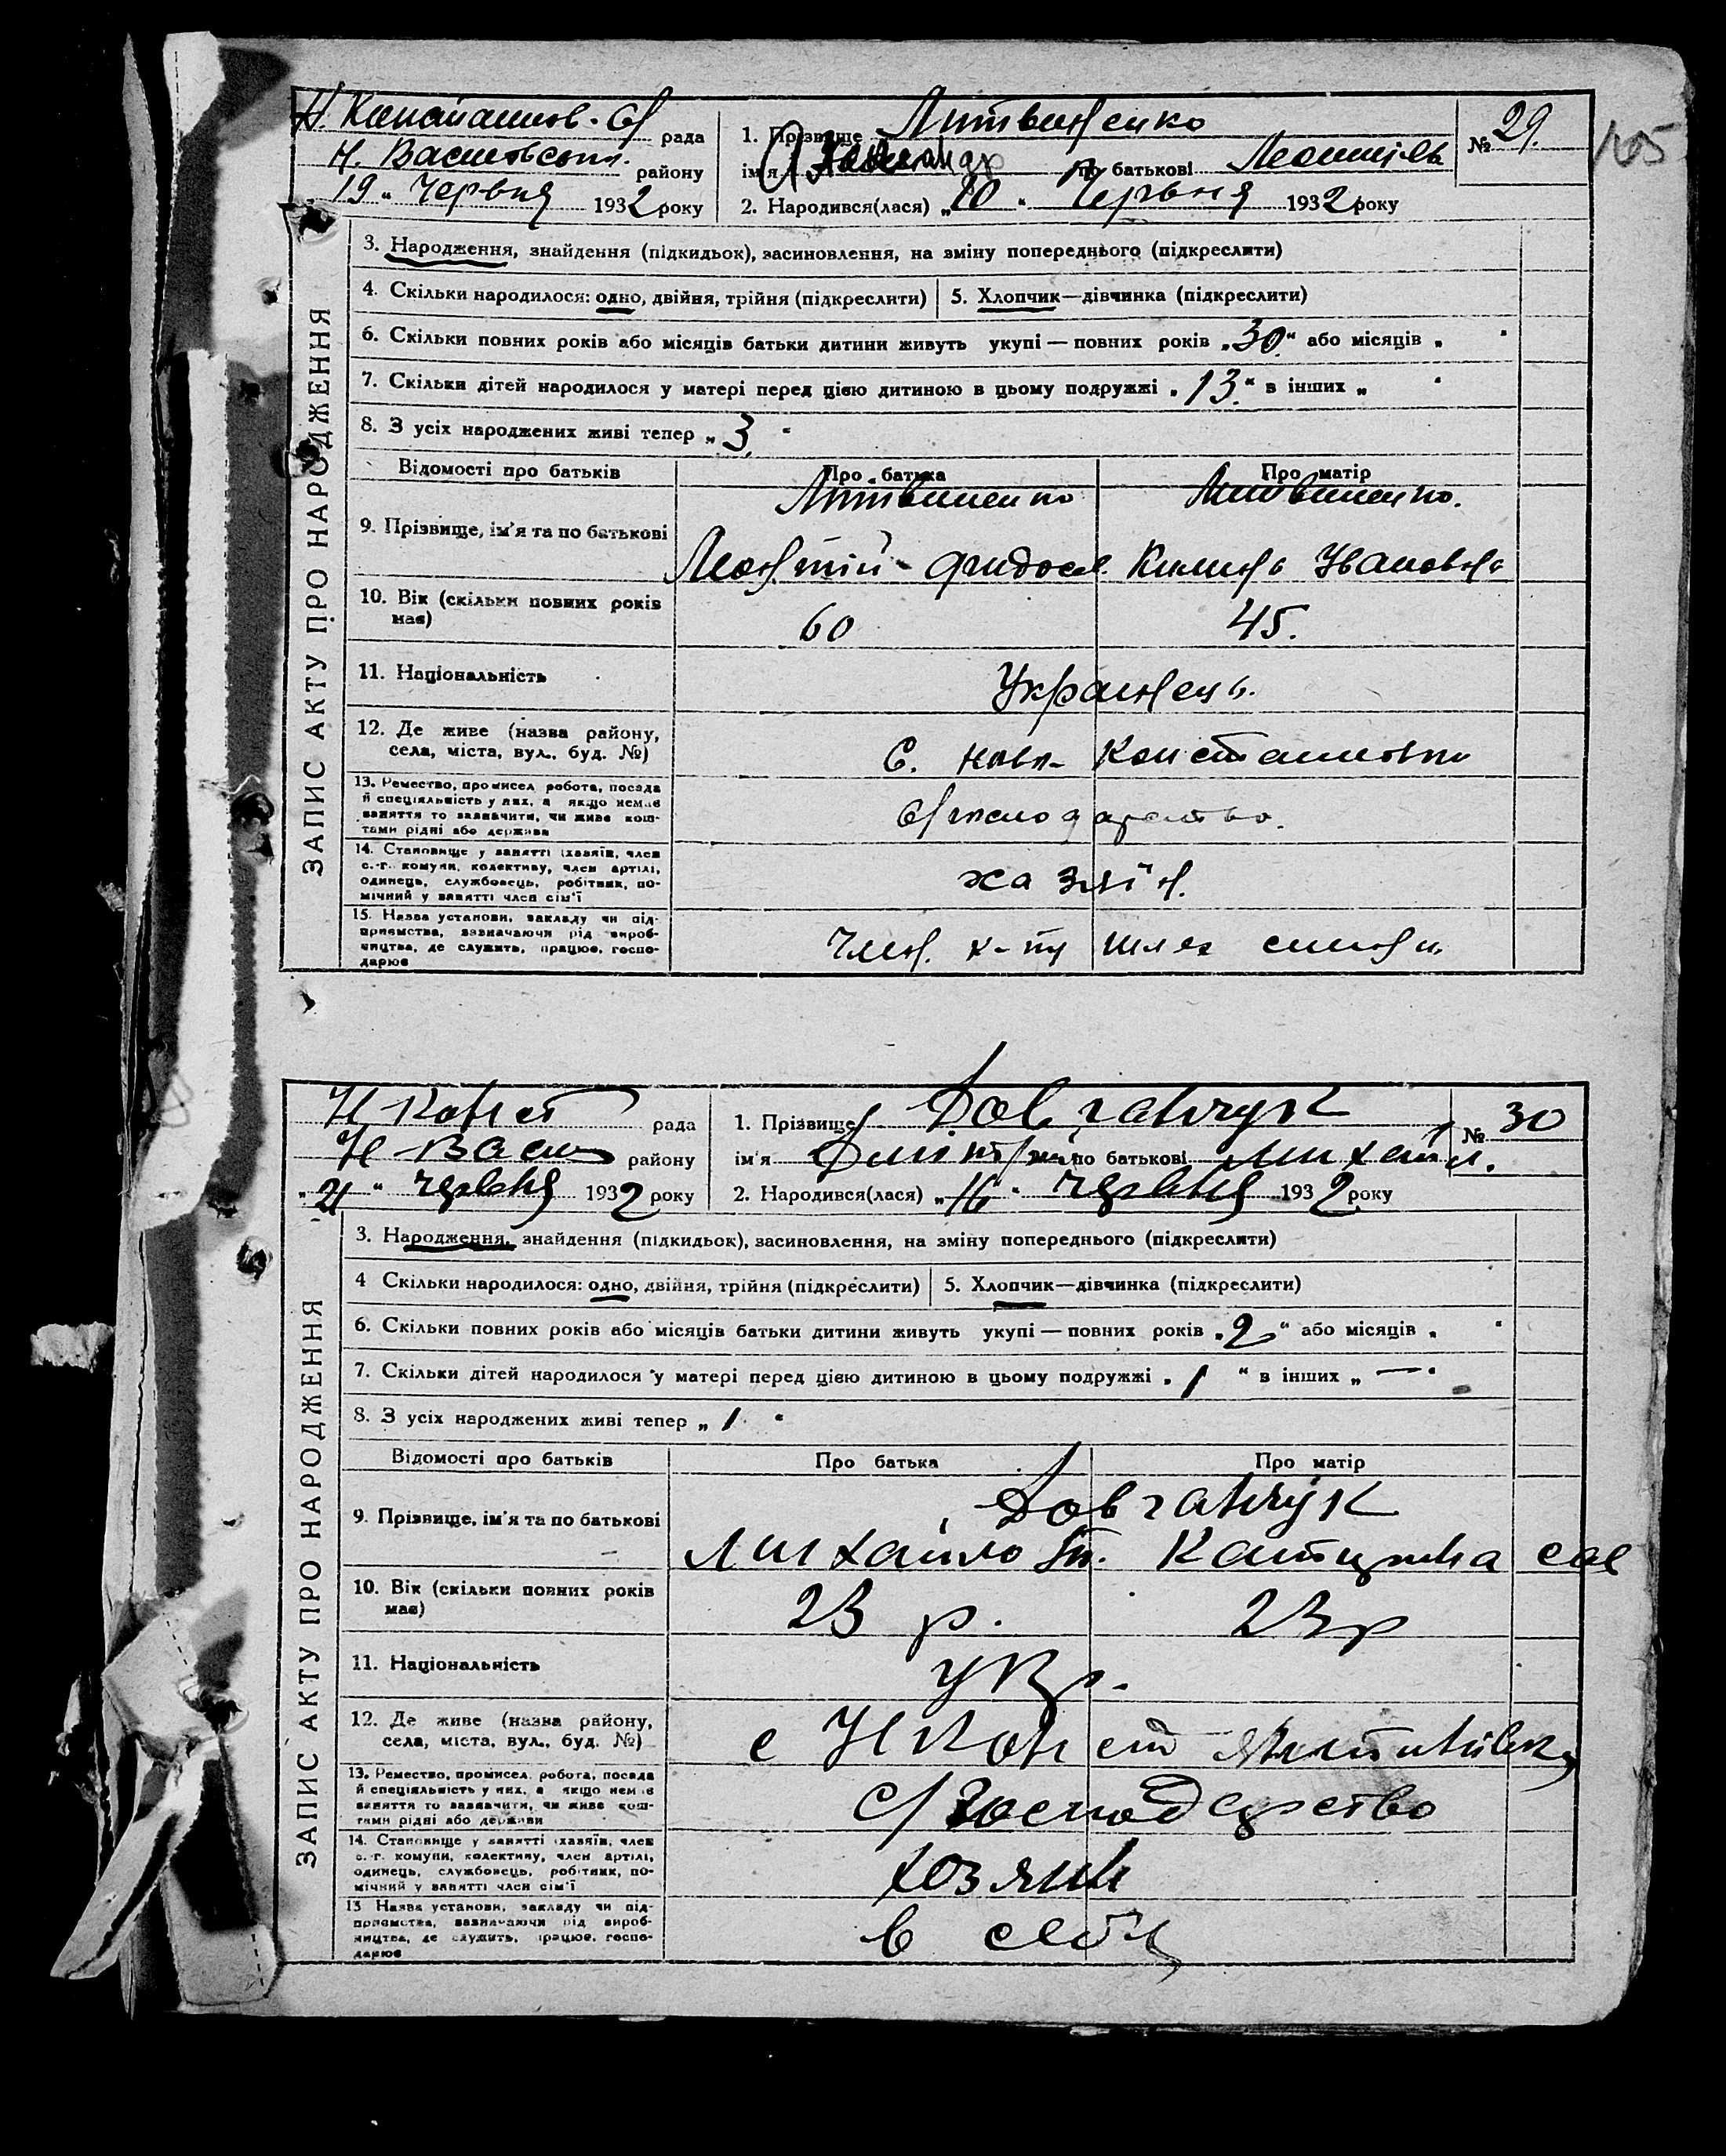 Н. Константинов. С/ рада
Н. Васильевськ. району
19 „ Червня 1932 року
1. Прізвище Литвиненко
ім'я Олександр по батькові
2. Народився(лася) „10 “ Червня 1932 року
№ 29.
105
ЗАПИС АКТУ ПРО НАРОДЖЕННЯ
3. Народження, знайдення (підкидьок), засиновлення, на зміну попереднього (підкреслити)
4. Скільки народилося: одно, двійня, трійня (підкреслити) 5. Хлопчик—дівчинка (підкреслити)
6. Скільки повних років або місяців батьки дитини живуть укупі — повних років „30“ або місяців „ “
7. Скільки дітей народилося у матері перед цією дитиною в цьому подружжі „13“ в інших „ “
8. З усіх народжених живі тепер „3“
Відомості про батьків Про батька Про матір
9. Прізвище, ім'я та по батькові Литвиненко Литвиненко.
Леонтій Фидос. Ивановна
10. Вік (скільки повних років має) 60 45.
11. Національність Українець.
12. Де живе (назва району, села, міста, вул., буд. №) С. Ново- Константиновка
13. Ремество, промисел, робота, посада й спеціяльність у них, а якщо немає заняття то зазначити, чи живе коштами рідні або держави С/господарство.
14. Становище у занятті (хазяїн, член с.-г. комуни, колективу, член артілі, одинець, службовець, робітник, помічний у занятті член сім'ї хазяїн.
15. Назва установи, закладу чи підприємства, зазначаючи рід виробництва, де служить, працює, господарює Член. к-ту шлях
Н Конст рада
Н Васил району
„21“ червня 1932 року
1. Прізвище Довганчук
ім'я Дмітрий по батькові Михайл.
2. Народився(лася) „16“ червня 1932 року
№ 30
ЗАПИС АКТУ ПРО НАРОДЖЕННЯ
3. Народження, знайдення (підкидьок), засиновлення, на зміну попереднього (підкреслити)
4 Скільки народилося: одно, двійня, трійня (підкреслити) 5. Хлопчик—дівчинка (підкреслити)
6. Скільки повних років або місяців батьки дитини живуть укупі — повних років „2“ або місяців „ “
7. Скільки дітей народилося у матері перед цією дитиною в цьому подружжі „1“ в інших „—“
8. З усіх народжених живі тепер „1“
Відомості про батьків Про батька Про матір
9. Прізвище, ім'я та по батькові Довганчук
Михайло
10. Вік (скільки повних років має) 23 р. 23 р
11. Національність укр.
12. Де живе (назва району, села, міста, вул., буд. №) с Н Конст
13. Ремество, промисел, робота, посада й спеціяльність у них, а якщо немає заняття то зазначити, чи живе коштами рідні або держави С/господарство
14. Становище у занятті (хазяїн, член с.-г. комуни, колективу, член артілі, одинець, службовець, робітник, помічний у занятті член сім'ї хозяин
15 Назва установи, закладу чи підприємства, зазначаючи рід виробництва, де служить, працює, господарює в селі